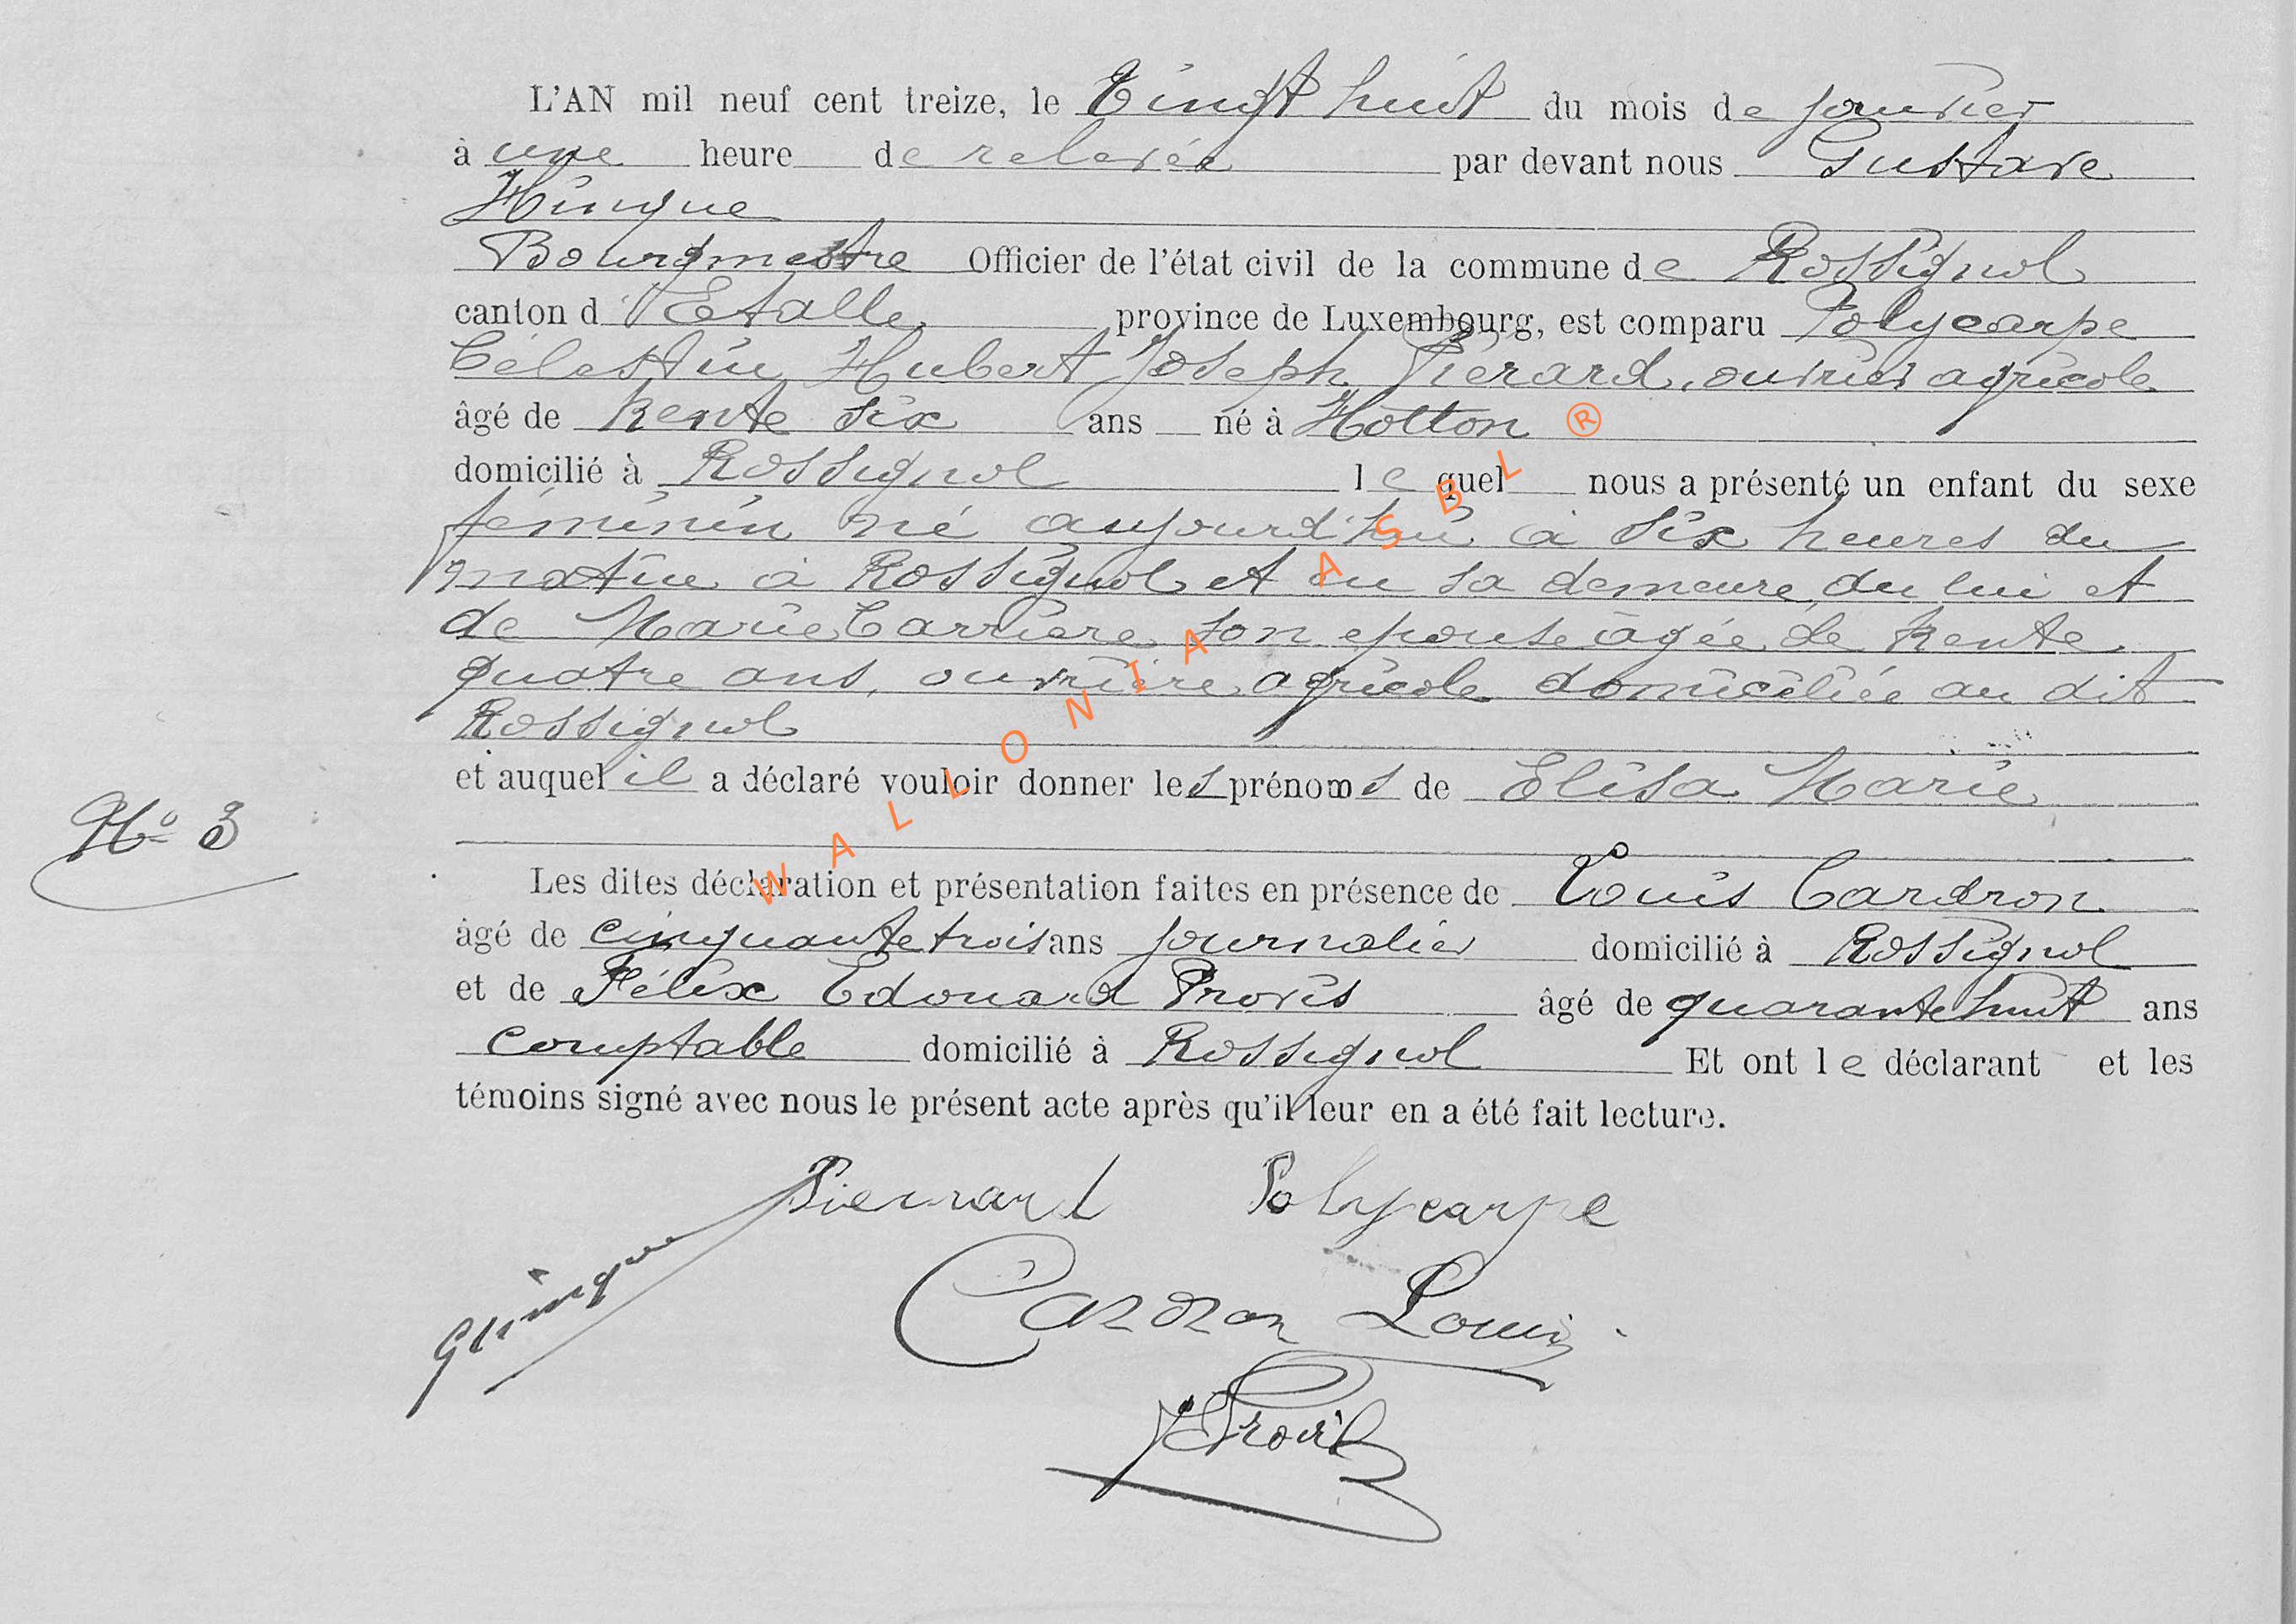 L'AN mil neuf cent treize, le Vingt huit du mois de janvier
à une heure de relevée par devant nous Gustave
Hurieque
Bourgmestre Officier de l'état civil de la commune de Rossignol
canton d'Etalle province de Luxembourg, est comparu Polycarpe
Célestin Hubert Joseph Piérard, ouvrier agricole
âgé de trente six ans né à Hotton ®
domicilié à Rossignol lequel nous a présenté un enfant du sexe
féminin né aujourd'hui à six heures du
matin à Rossignol et en sa demeure, de lui et
de Marie Carrière son épouse âgée de trente
quatre ans, ouvrière agricole domiciliée au dit
Rossignol
et auquel il a déclaré vouloir donner les prénoms de Elisa Marie
N° 3
Les dites déclaration et présentation faites en présence de Louis Cardron
âgé de cinquante trois ans journalier domicilié à Rossignol
et de Félix Edouard Provis âgé de quarante huit ans
comptable domicilié à Rossignol Et ont le déclarant et les
témoins signé avec nous le présent acte après qu'il leur en a été fait lecture.
Piérard Polycarpe
Cardron Louis
Provis
WALLONIA ASBL